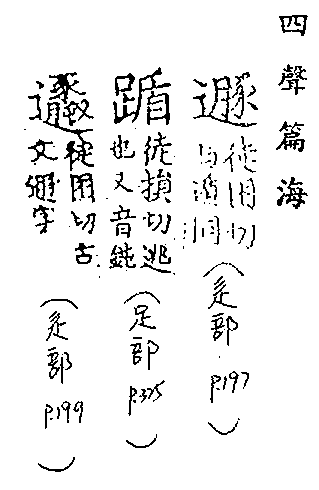 四聲篇海
遯
徒困切
与遁同
(辵部 P.197)
踲
徒損切逃
也又音鈍
(足部 P.375)
徒困切古
文遯字
(辵部 P.199)